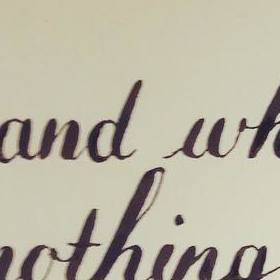 and wh
nothing